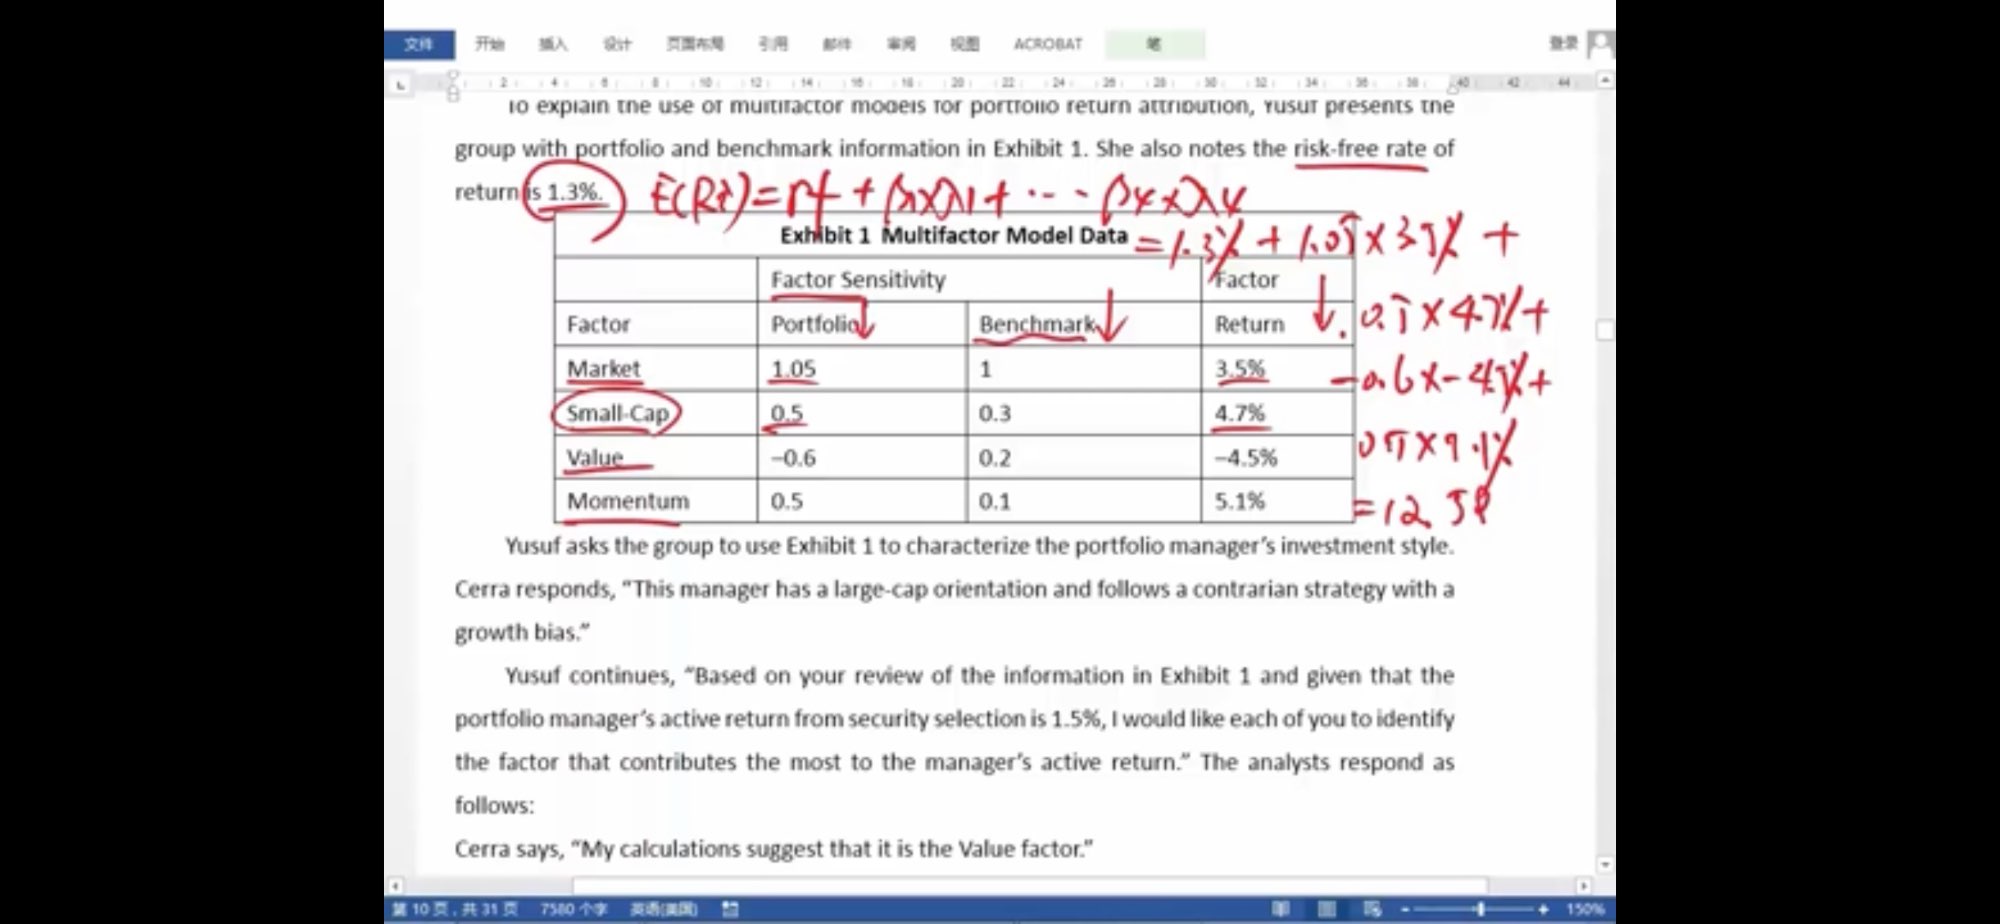 文件 开始 插入 设计 页面布局 引用 邮件 审阅 视图 ACROBAT 笔 登录
2 4 6 8 10 12 14 16 18 20 22 24 26 28 30 32 34 36 38 40 42 44
To explain the use of multifactor models for portfolio return attribution, Yusuf presents the
group with portfolio and benchmark information in Exhibit 1. She also notes the risk-free rate of
return is 1.3%.
Exhibit 1 Multifactor Model Data
= 1.3% + 1.05 × 3.5% +
Factor Sensitivity Factor
Factor Portfolio Benchmark Return
0.5 × 4.7% +
Market 1.05 1 3.5%
-0.6 × -4.5% +
Small-Cap 0.5 0.3 4.7%
Value –0.6 0.2 –4.5%
Momentum 0.5 0.1 5.1%
Yusuf asks the group to use Exhibit 1 to characterize the portfolio manager's investment style.
Cerra responds, “This manager has a large-cap orientation and follows a contrarian strategy with a
growth bias.”
Yusuf continues, “Based on your review of the information in Exhibit 1 and given that the
portfolio manager's active return from security selection is 1.5%, I would like each of you to identify
the factor that contributes the most to the manager's active return.” The analysts respond as
follows:
Cerra says, “My calculations suggest that it is the Value factor.”
第 10 页，共 31 页 7580 个字 英语(美国) 150%